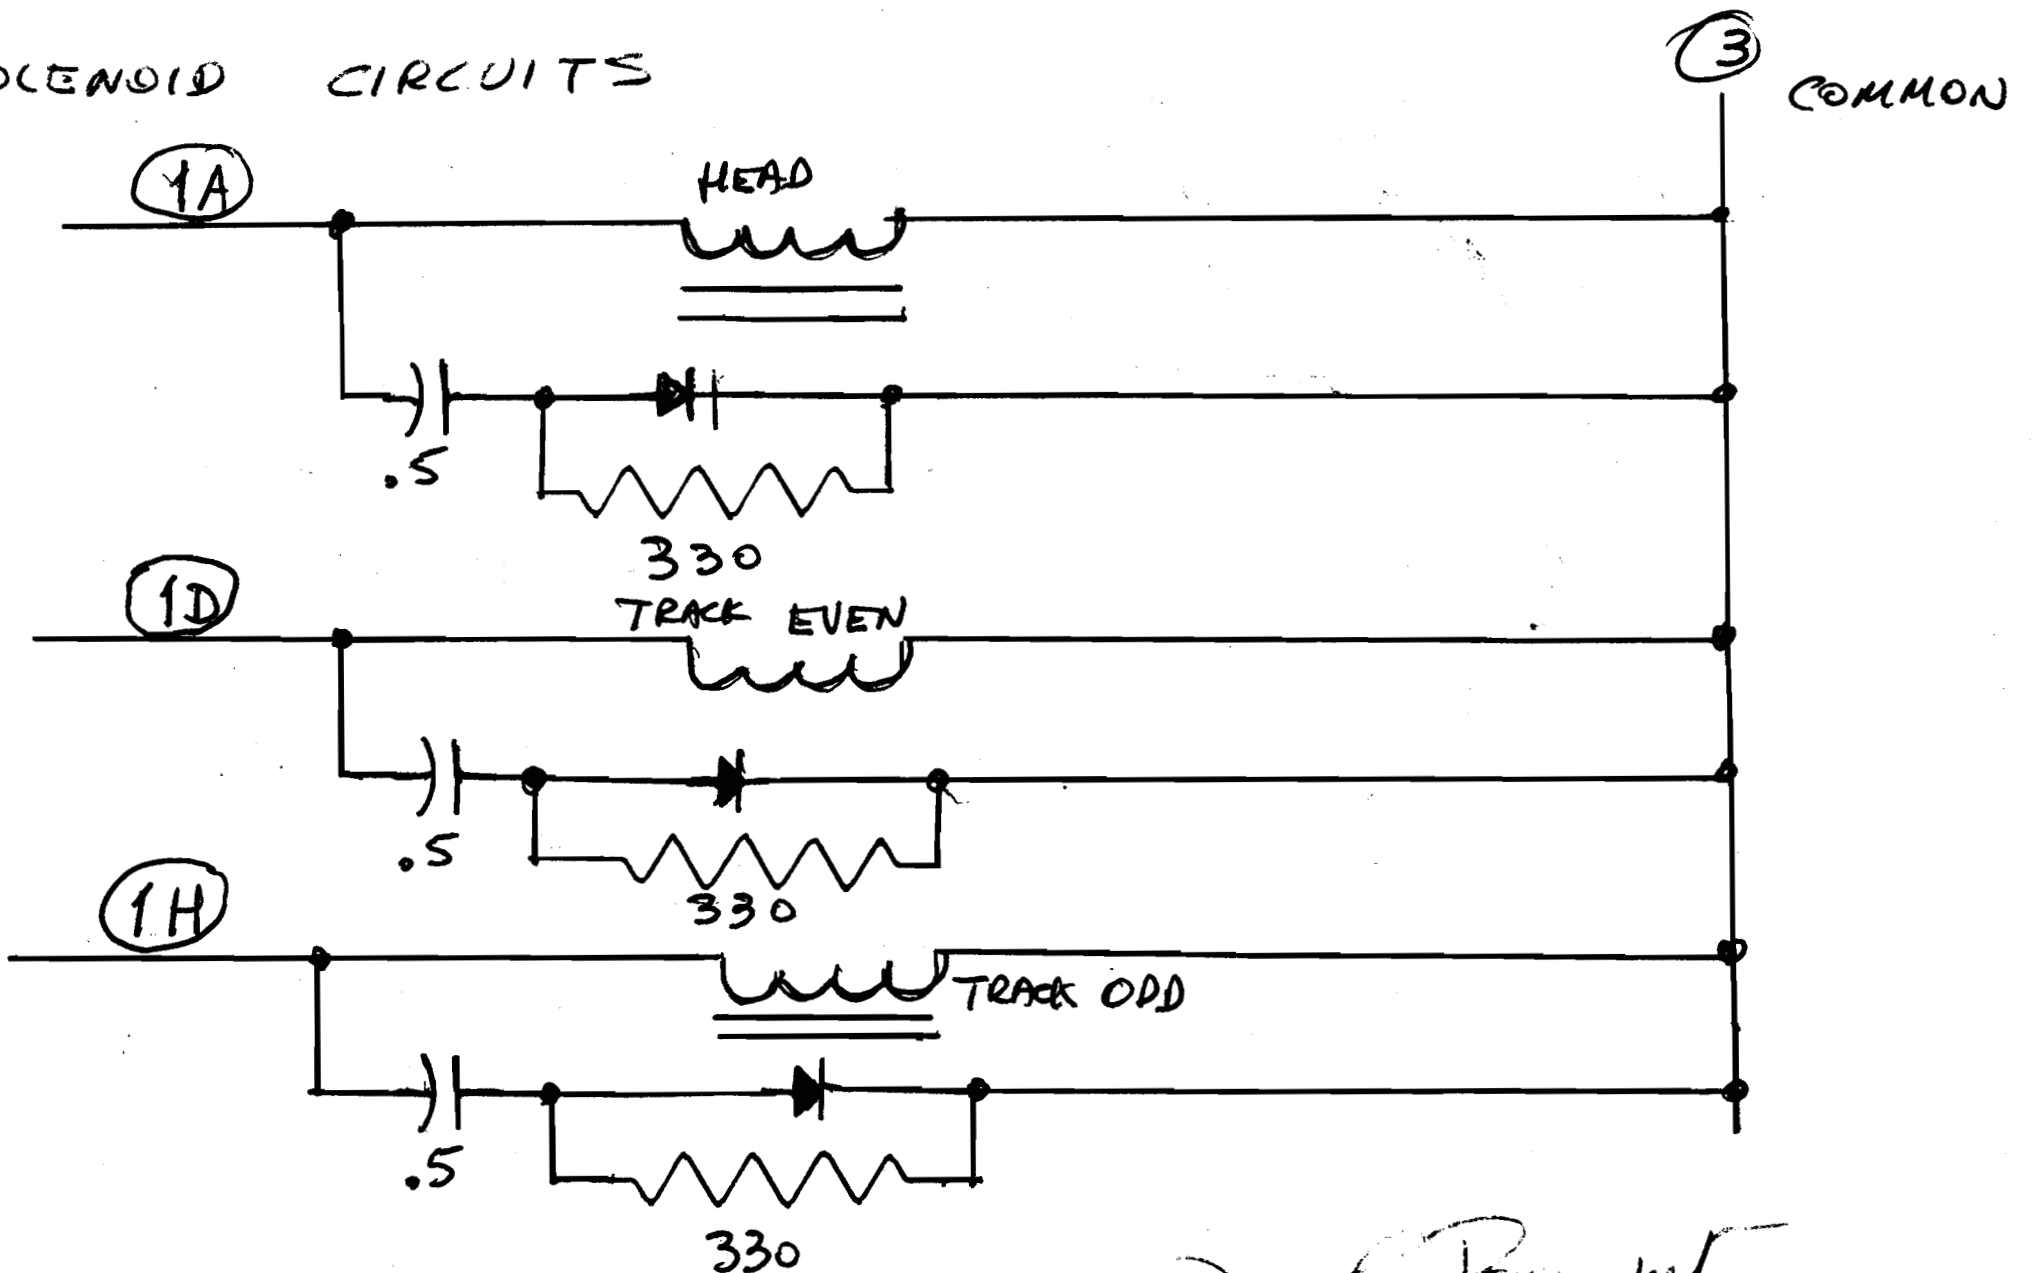 OLENOID CIRCUITS
3
COMMON
1A
HEAD
.5
330
1D
TRACK EVEN
.5
330
1H
TRACK ODD
.5
330